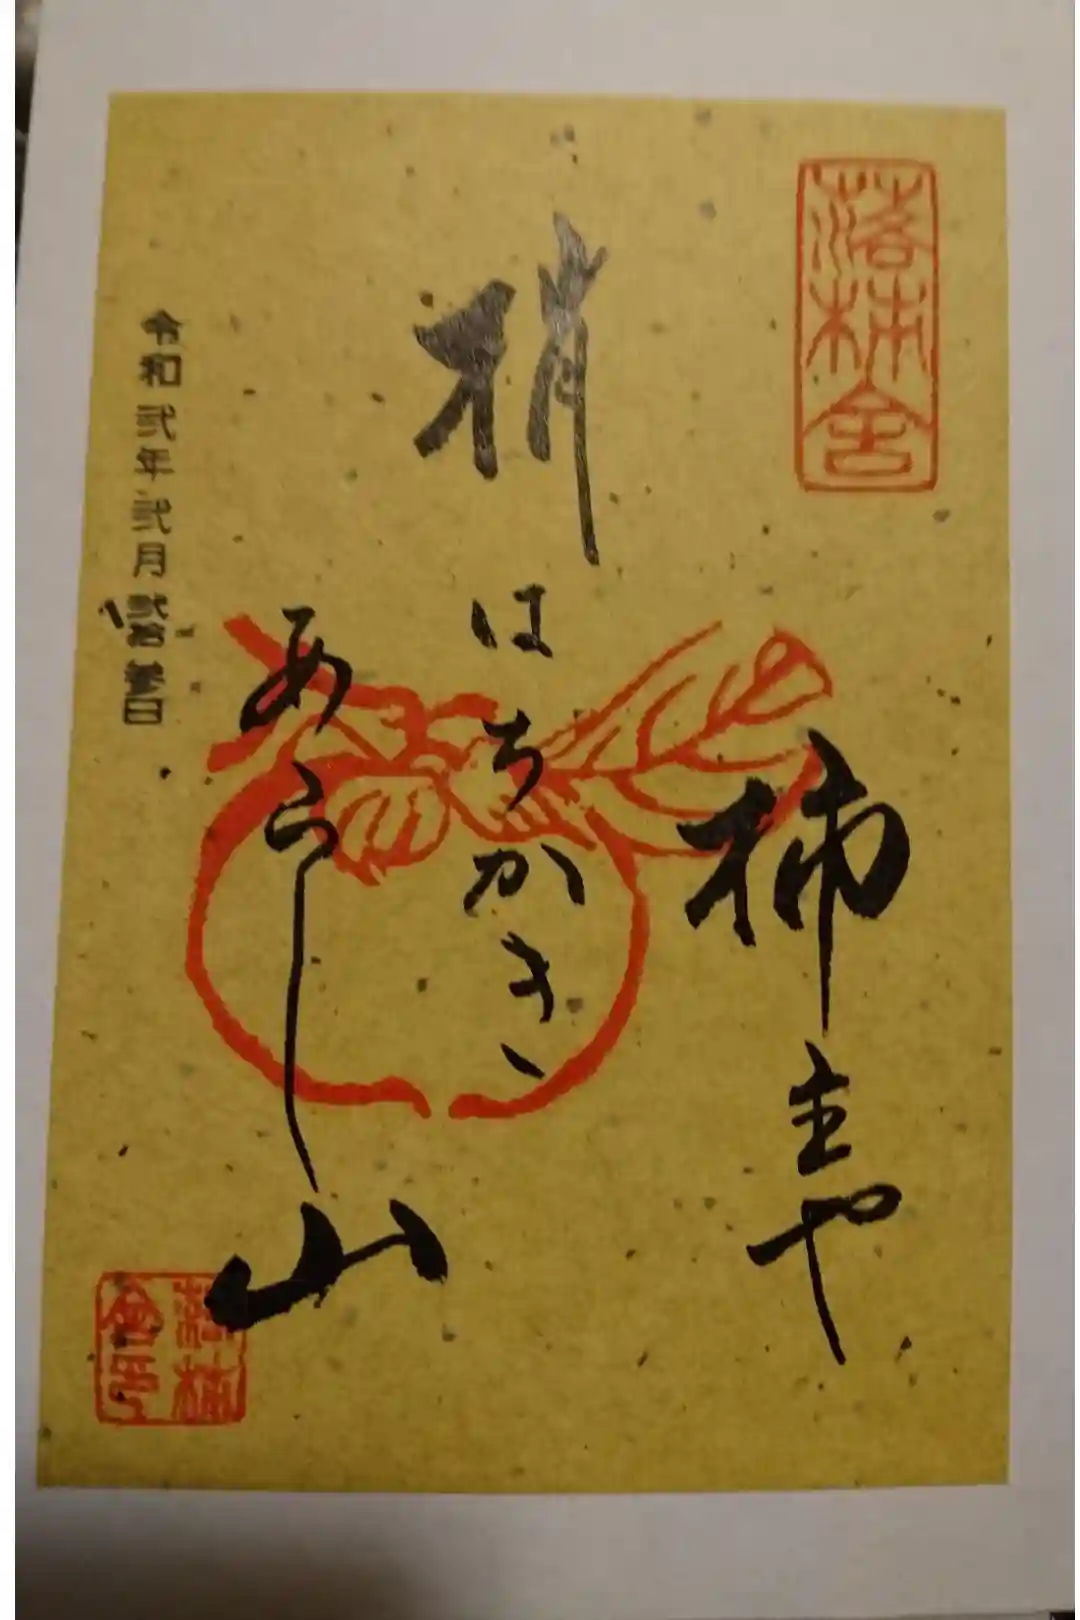 落柿舎
柿主や
梢はちかきゝ
あらし山
令和弐年弐月弐拾参日
落柿舎印